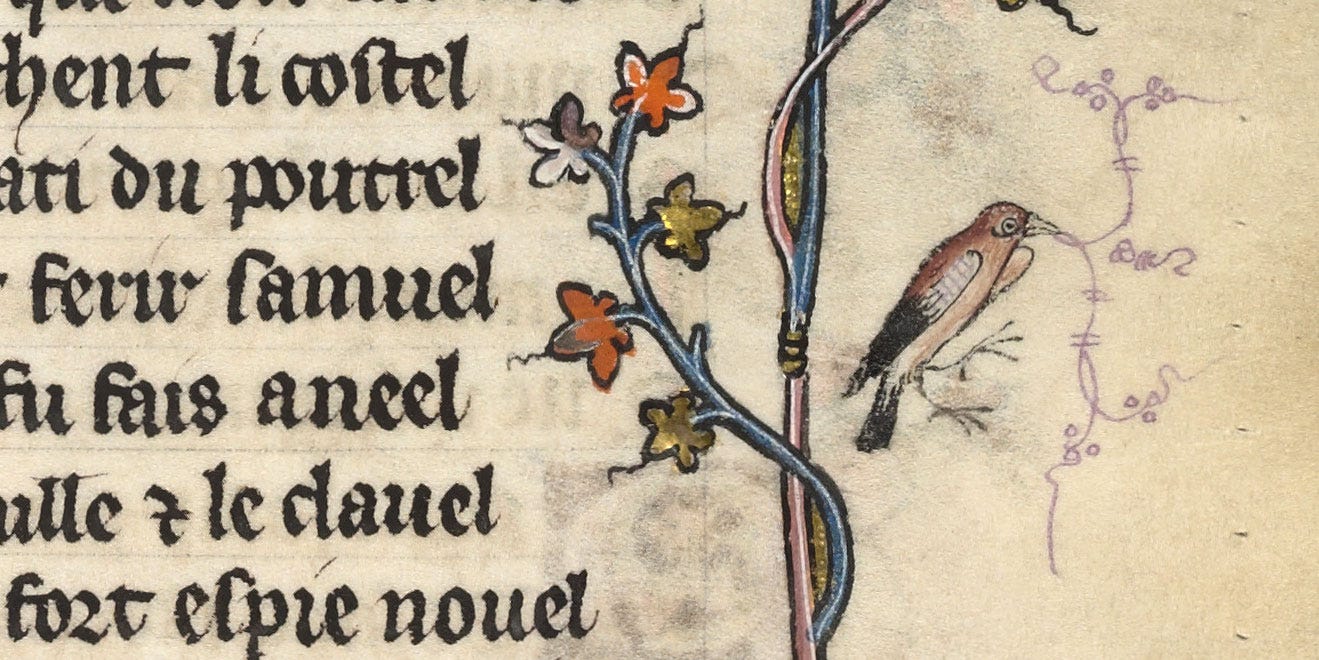 hent li costel
ati du poutrel
ferir samuel
fu fais aneel
ille ⁊ le clauel
fort espie nouel